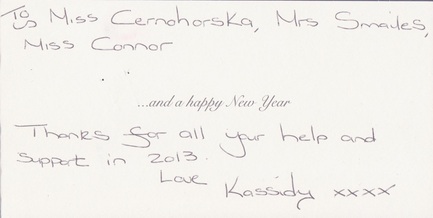 To Miss Cernohorska, Mrs Smailes,
Miss Connor
...and a happy New Year
Thanks for all your help and
support in 2013.
Love Kassidy xxxx